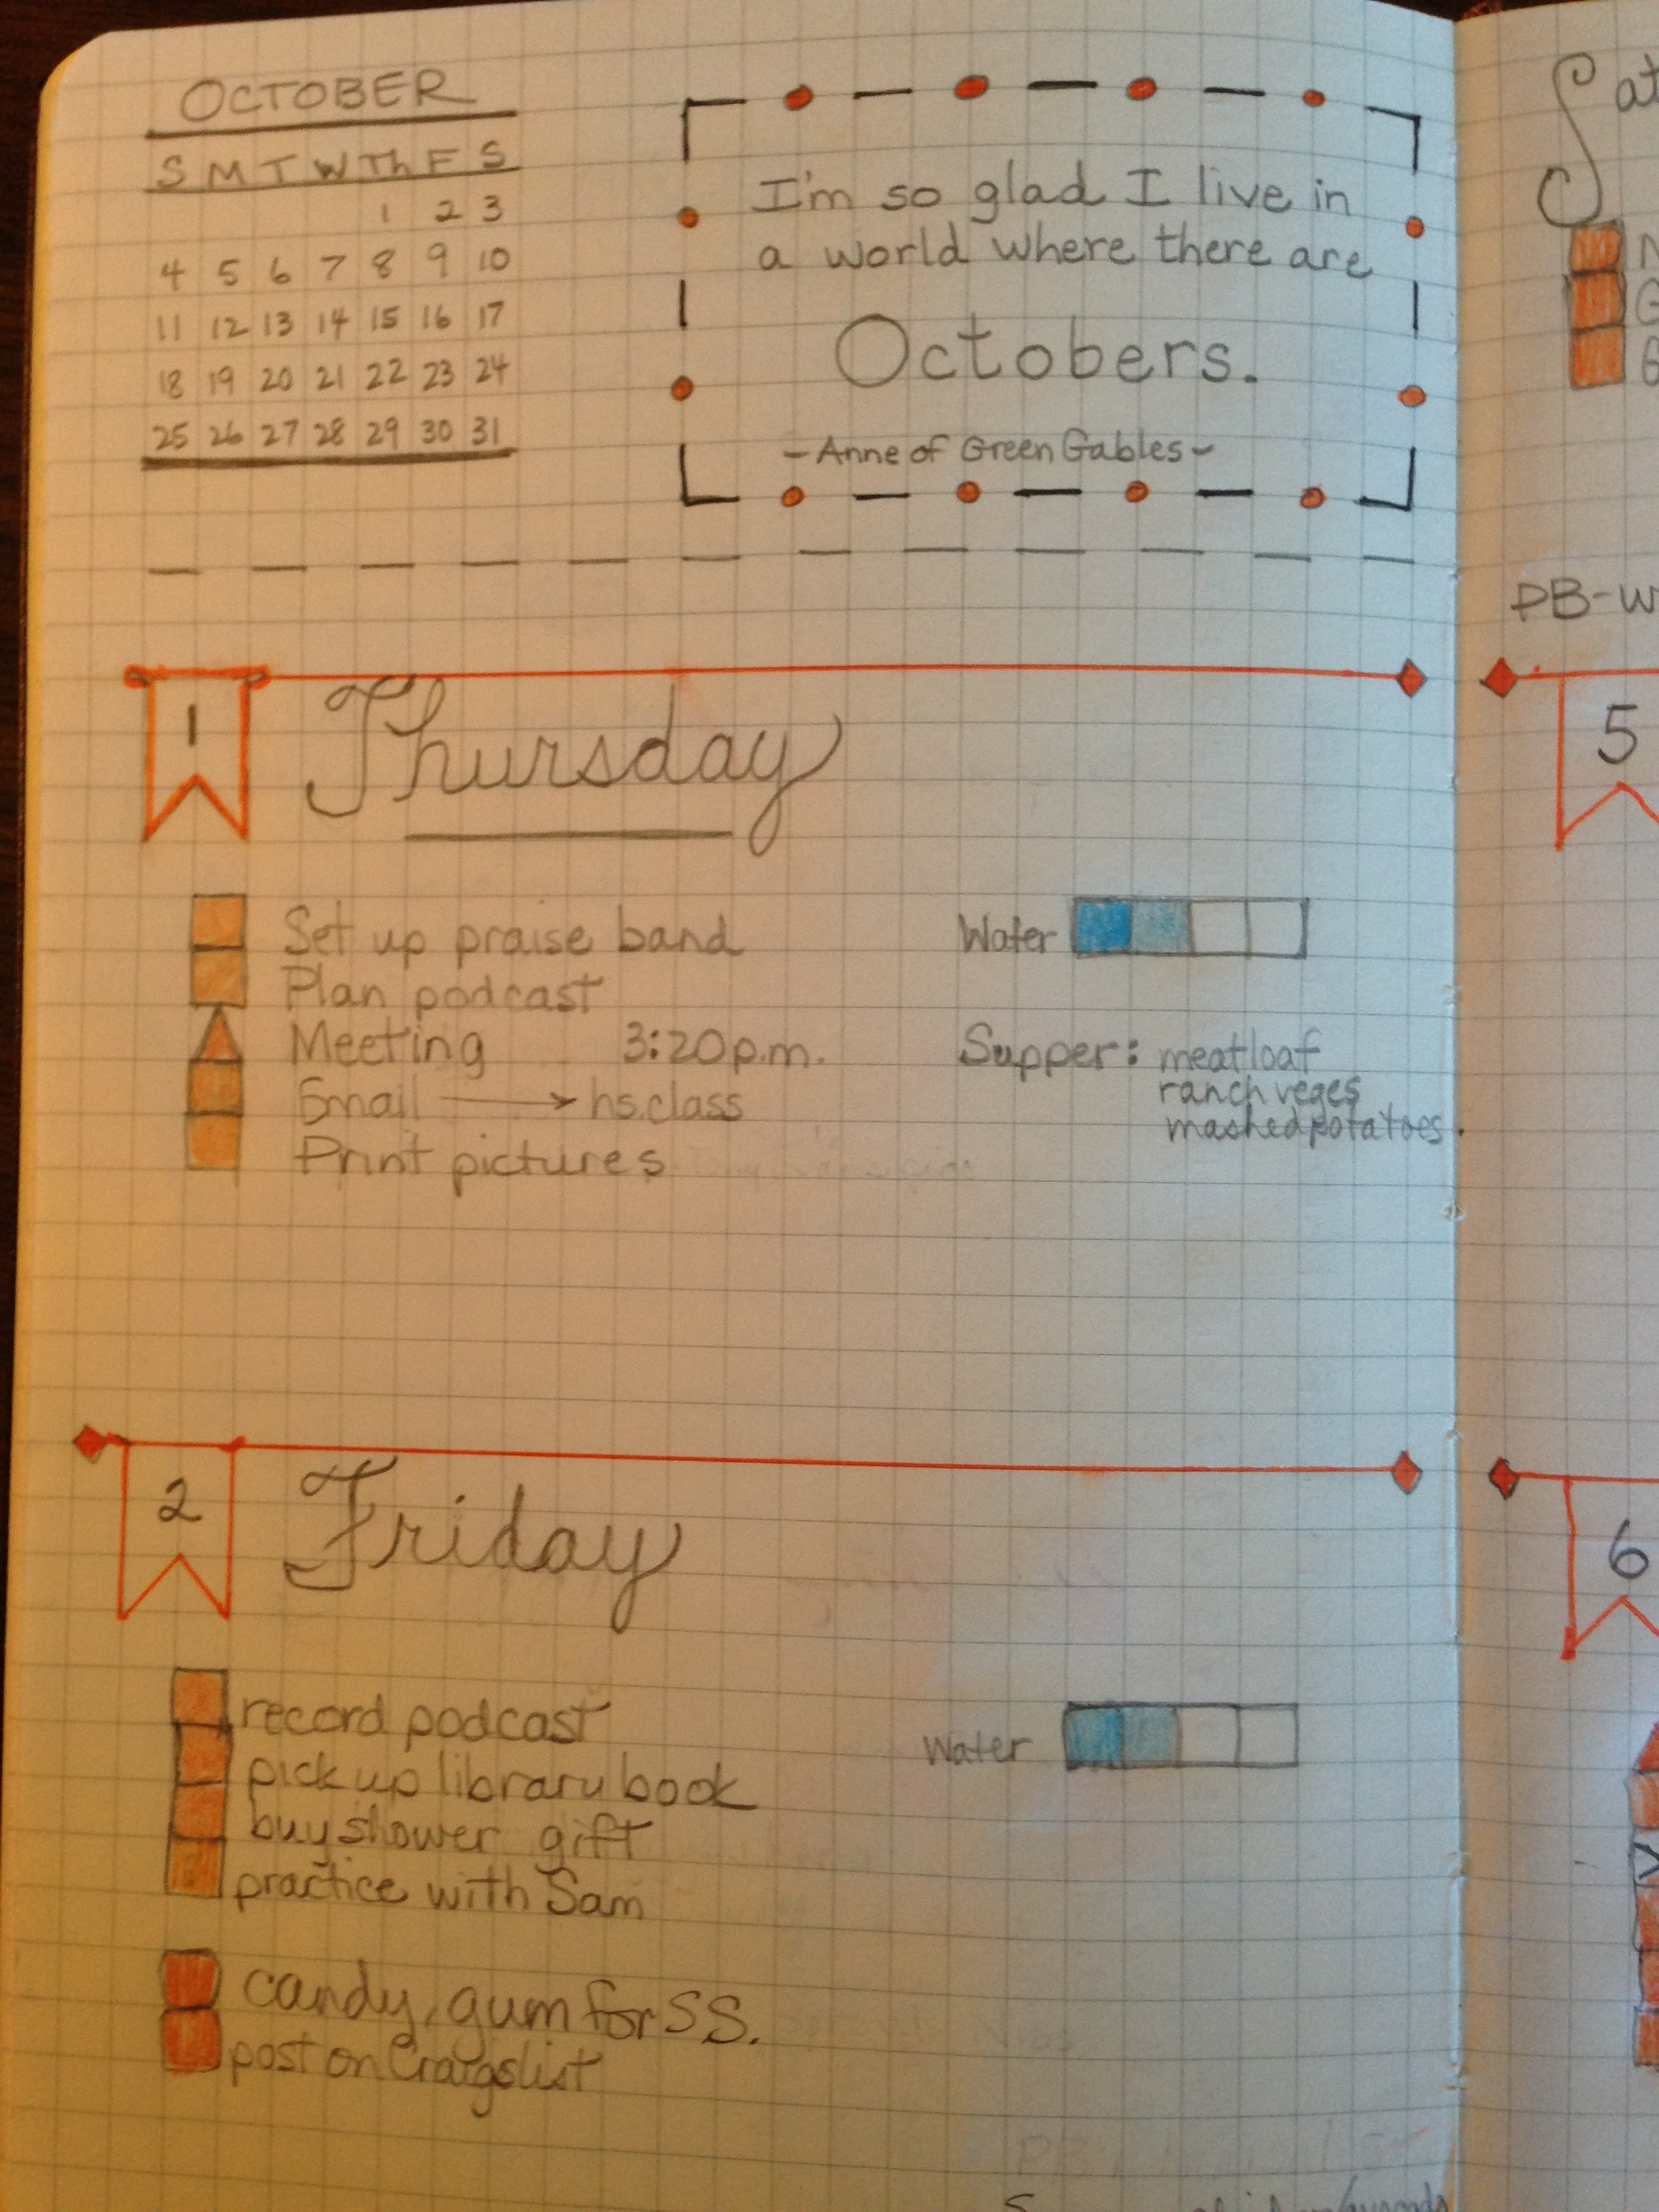 OCTOBER
S M T W Th F S
1 2 3
4 5 6 7 8 9 10
11 12 13 14 15 16 17
18 19 20 21 22 23 24
25 26 27 28 29 30 31
I'm so glad I live in
a world where there are
Octobers.
-Anne of Green Gables-
1 Thursday
Set up praise band
Plan podcast
Meeting 3:20 p.m.
Email → hs.class
Print pictures
Water
Supper: meatloaf
ranch veges
mashed potatoes.
2 Friday
record podcast
pick up library book
buy shower gift
practice with Sam
candy, gum for S.S.
post on Craigslist
Water
PB-w
5
6